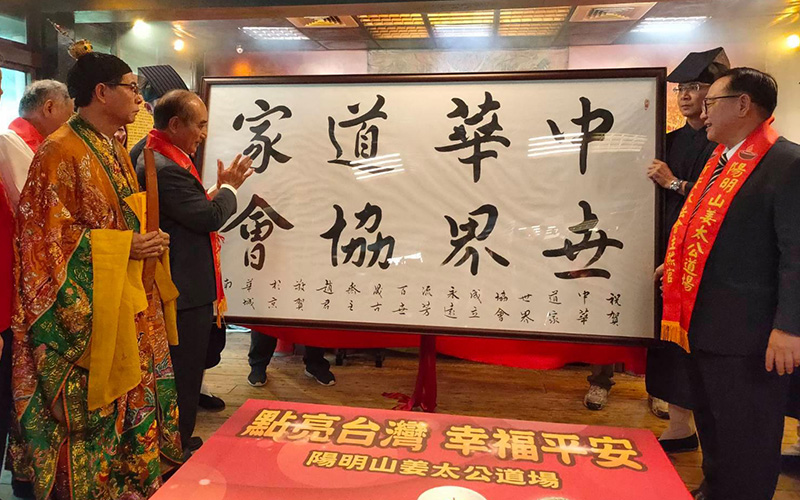 中華道家
世界協會
祝賀
中華
道家
世界
協會
成立
永遠
流芳
百世
趙君
敬賀
於京
華城
陽明山姜太公道場
點亮台灣 幸福平安
陽明山姜太公道場